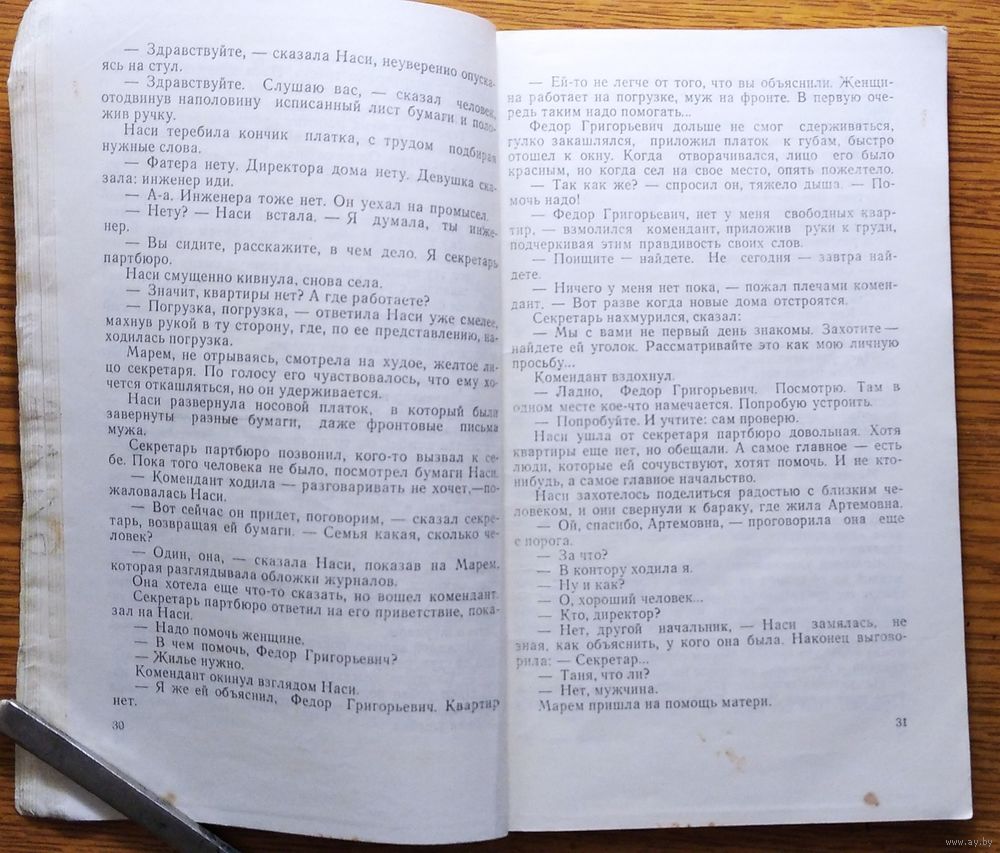 — Здравствуйте, — сказала Наси, неуверенно опуска-
ясь на стул.
— Здравствуйте. Слушаю вас, — сказал человек,
отодвинув наполовину исписанный лист бумаги и поло-
жив ручку.
Наси теребила кончик платка, с трудом подбирая
нужные слова.
— Фатера нету. Директора дома нету. Девушка ска-
зала: инженер иди.
— А-а. Инженера тоже нет. Он уехал на промысел.
— Нету? — Наси встала. — Я думала, ты инже-
нер.
— Вы сидите, расскажите, в чем дело. Я секретарь
партбюро.
Наси смущенно кивнула, снова села.
— Значит, квартиры нет? А где работаете?
— Погрузка, погрузка, — ответила Наси уже смелее,
махнув рукой в ту сторону, где, по ее представлению, на-
ходилась погрузка.
Марем, не отрываясь, смотрела на худое, желтое ли-
цо секретаря. По голосу его чувствовалось, что ему хо-
чется откашляться, но он удерживается.
Наси развернула носовой платок, в который были
завернуты разные бумаги, даже фронтовые письма
мужа.
Секретарь партбюро позвонил, кого-то вызвал к се-
бе. Пока того человека не было, посмотрел бумаги Наси.
— Комендант ходила — разговаривать не хочет,—по-
жаловалась Наси.
— Вот сейчас он придет, поговорим, — сказал секре-
тарь, возвращая ей бумаги. — Семья какая, сколько че-
ловек?
— Один, она, — сказала Наси, показав на Марем,
которая разглядывала обложки журналов.
Она хотела еще что-то сказать, но вошел комендант.
Секретарь партбюро ответил на его приветствие, пока-
зал на Наси.
— Надо помочь женщине.
— В чем помочь, Федор Григорьевич?
— Жилье нужно.
Комендант окинул взглядом Наси.
— Я же ей объяснил, Федор Григорьевич. Квартир
нет.
30
— Ей-то не легче от того, что вы объяснили. Женщи-
на работает на погрузке, муж на фронте. В первую оче-
редь таким надо помогать...
Федор Григорьевич дольше не смог сдерживаться,
гулко закашлялся, приложил платок к губам, быстро
отошел к окну. Когда отворачивался, лицо его было
красным, но когда сел на свое место, опять пожелтело.
— Так как же? — спросил он, тяжело дыша. — По-
мочь надо!
— Федор Григорьевич, нет у меня свободных квар-
тир, — взмолился комендант, приложив руки к груди,
подчеркивая этим правдивость своих слов.
— Поищите — найдете. Не сегодня — завтра най-
дете.
— Ничего у меня нет пока, — пожал плечами комен-
дант. — Вот разве когда новые дома отстроятся.
Секретарь нахмурился, сказал:
— Мы с вами не первый день знакомы. Захотите —
найдете ей уголок. Рассматривайте это как мою личную
просьбу...
Комендант вздохнул.
— Ладно, Федор Григорьевич. Посмотрю. Там в
одном месте кое-что намечается. Попробую устроить.
— Попробуйте. И учтите: сам проверю.
Наси ушла от секретаря партбюро довольная. Хотя
квартиры еще нет, но обещали. А самое главное — есть
люди, которые ей сочувствуют, хотят помочь. И не кто-
нибудь, а самое главное начальство.
Наси захотелось поделиться радостью с близким че-
ловеком, и они свернули к бараку, где жила Артемовна.
— Ой, спасибо, Артемовна, — проговорила она еще
с порога.
— За что?
— В контору ходила я.
— Ну и как?
— О, хороший человек...
— Кто, директор?
— Нет, другой начальник, — Наси замялась, не
зная, как объяснить, у кого она была. Наконец выгово-
рила: — Секретар...
— Таня, что ли?
— Нет, мужчина.
Марем пришла на помощь матери.
31
www.ay.by